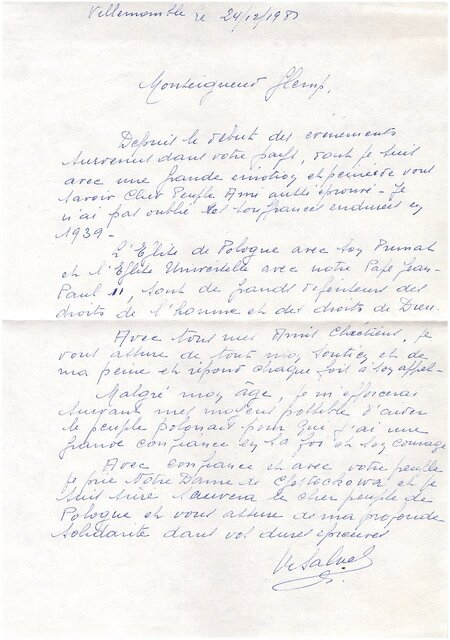 Villemomble le 24/12/1981
Monseigneur Glemp,
Depuis le début des évènements
survenus dans votre pays, dont je suis
avec une grande émotion et peine de vous
savoir Cher Peuple Ami aussi éprouvé - Je
n'ai pas oublié les souffrances endurées en
1939 -
L'Eglise de Pologne avec son Primat
et l'Eglise Universelle avec notre Pape Jean-
Paul II, sont de grands défenseurs des
droits de l'homme et des droits de Dieu.
Avec tous mes Amis Chrétiens, je
vous assure de tout mon soutien et de
ma peine et répond chaque fois à son appel -
Malgré mon âge, je m'efforcerai
suivant mes moyens possible d'aider
le peuple polonais pour qui j'ai une
grande confiance en sa foi et son courage
Avec confiance et avec votre peuple
je prie Notre Dame de Czestochowa et je
suis sure sauvera le cher peuple de
Pologne et vous assure de ma profonde
solidarité dans vos dures épreuves